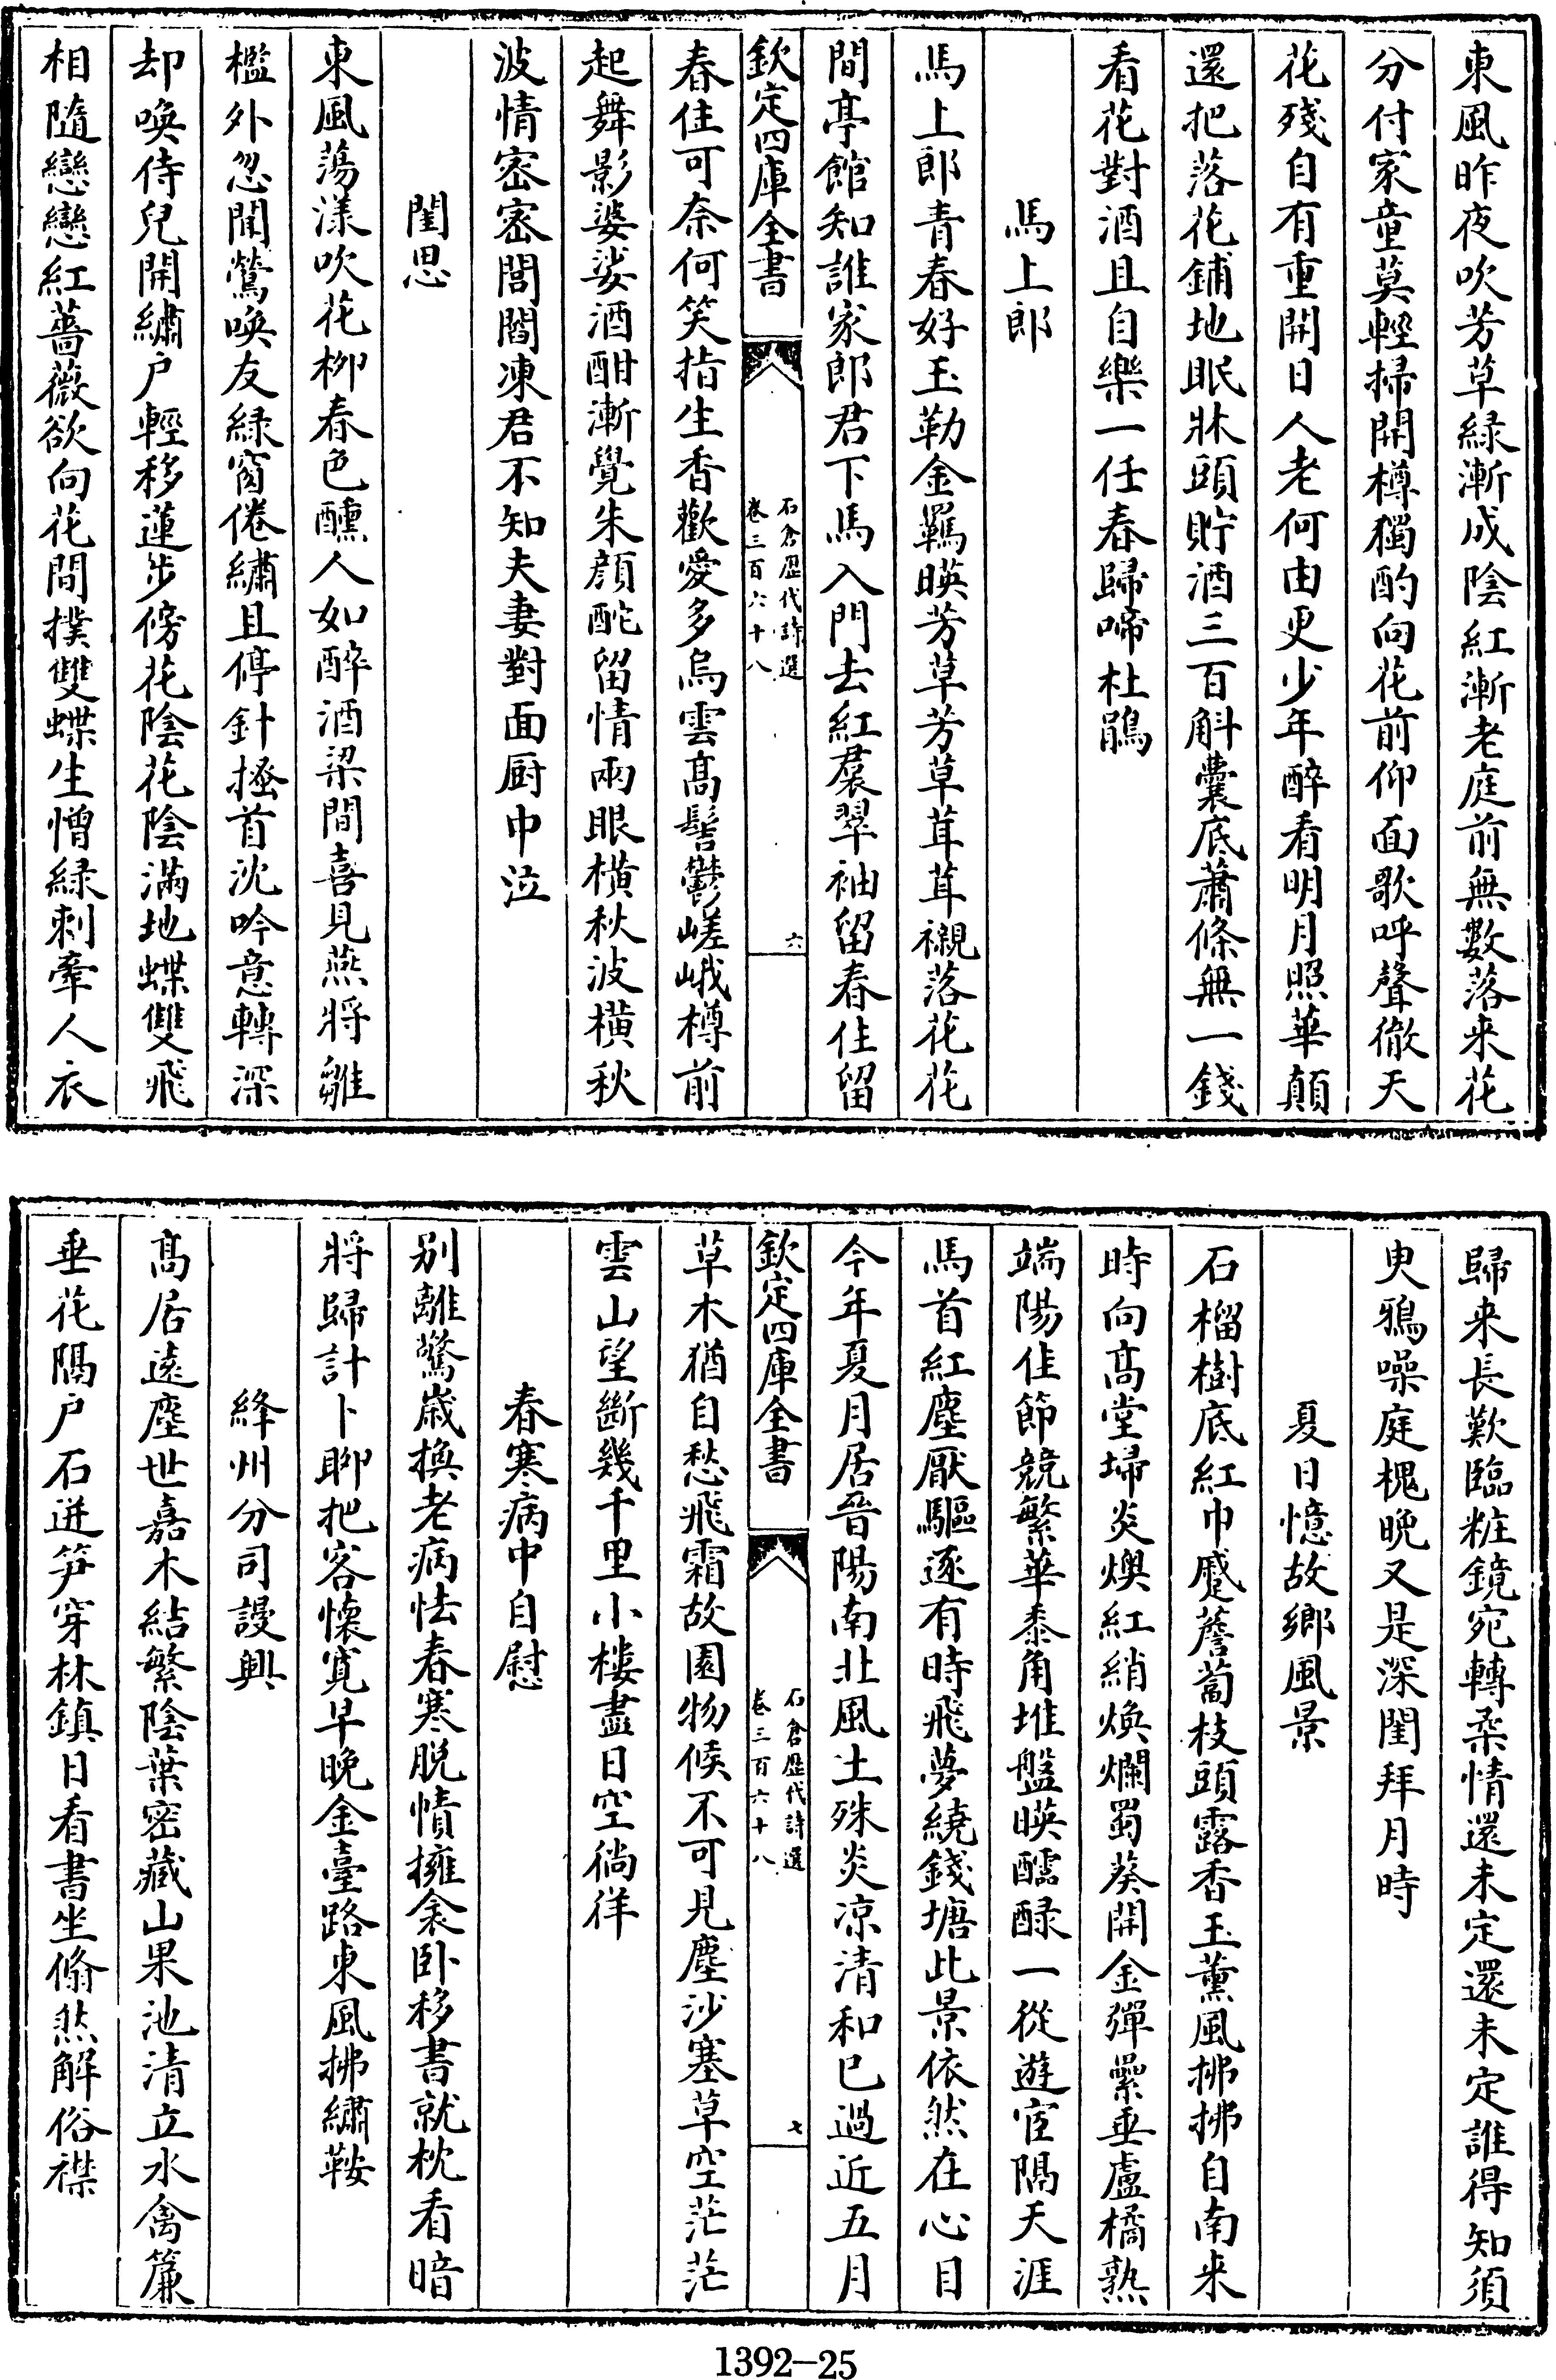 東風昨夜吹芳草綠漸成陰紅漸老庭前無數落來花
分付家童莫輕掃開樽獨酌向花前仰面歌呼聲徹天
花殘自有重開日人老何由更少年醉看明月照華顛
還把落花鋪地眠牀頭貯酒三百斛囊底蕭條無一錢
看花對酒且自樂一任春歸啼杜鵑
馬上郎
馬上郎青春好玉勒金羈暎芳草芳草茸茸襯落花花
間亭館知誰家郎君下馬入門去紅裠翠袖留春住留
欽定四庫全書
石倉歷代詩選
卷三百六十八
六
春住可奈何笑指生香歡愛多烏雲髙髻鬱嵯峨樽前
起舞影婆娑酒酣漸覺朱顔酡留情兩眼橫秋波橫秋
波情密密閤閤凍君不知夫妻對面厨中泣
閨思
東風蕩漾吹花柳春色醺人如醉酒梁間喜見燕將雛
檻外忽聞鶯喚友緑窗倦繡且停針搔首沈吟意轉深
却喚侍兒開繡户輕移蓮步傍花陰花陰滿地蝶雙飛
相隨戀戀紅薔薇欲向花間撲雙蝶生憎緑刺牽人衣
歸来長歎臨粧鏡宛轉柔情還未定還未定誰得知須
臾鴉噪庭槐晩又是深閨拜月時
夏日憶故鄉風景
石榴樹底紅巾蹙薝蔔枝頭露香玉薰風拂拂自南来
時向髙堂埽炎燠紅綃煥爛蜀葵開金彈纍垂盧橘熟
端陽佳節競繁華黍角堆盤暎醽醁一從遊宦隔天涯
馬首紅塵厭驅逐有時飛夢繞錢塘此景依然在心目
今年夏月居晉陽南北風土殊炎凉清和已過近五月
欽定四庫全書
石倉歷代詩選
卷三百六十八
七
草木猶自愁飛霜故園物候不可見塵沙塞草空茫茫
雲山望斷幾千里小樓盡日空徜徉
春寒病中自慰
别離驚歲換老病怯春寒脱幘擁衾卧移書就枕看暗
將歸計卜聊把客懷寛早晩金臺路東風拂繡鞍
絳州分司謾興
髙居遠塵世嘉木結繁陰葉密藏山果池清立水禽簾
垂花隔户石迸笋穿林鎮日看書坐翛然解俗襟
1392-25